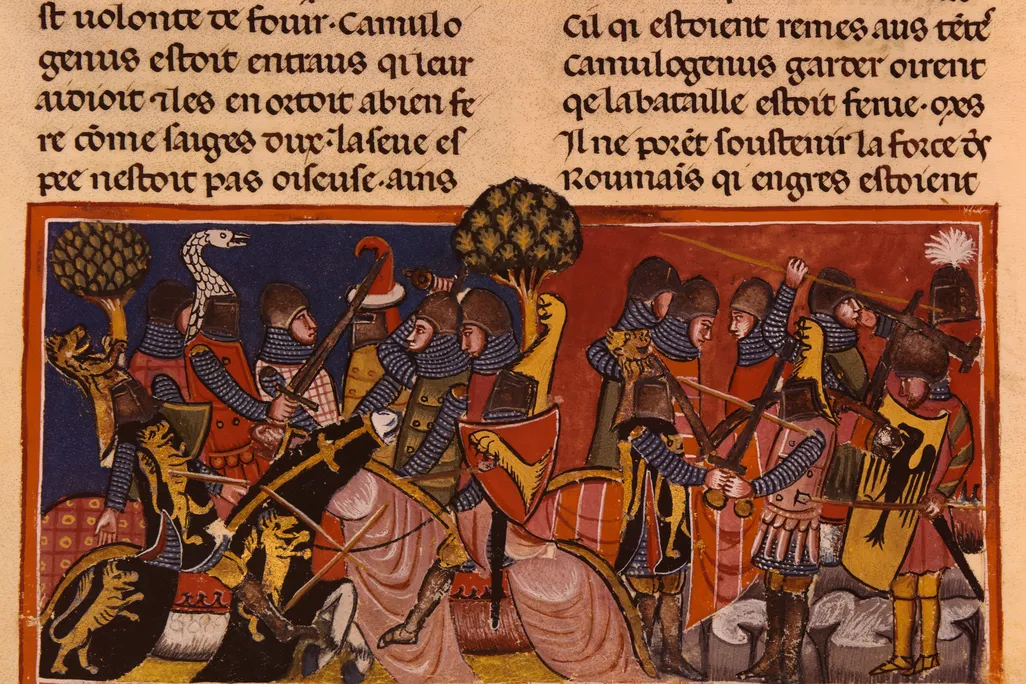 st uolonte de fouir·Camulo
genus estoit entraus qi leur
aidioit ⁊ les en ortoit a bien fe
re cōme saiges dux·la seue es
pee nestoit pas oiseuse·ains
Cil qi estoient remes aus tētes
Camulogenus garder oirent
qe la bataille estoit ferue·mes
Il ne porēt soustenir la force des
Roumaīs qi engres estoient